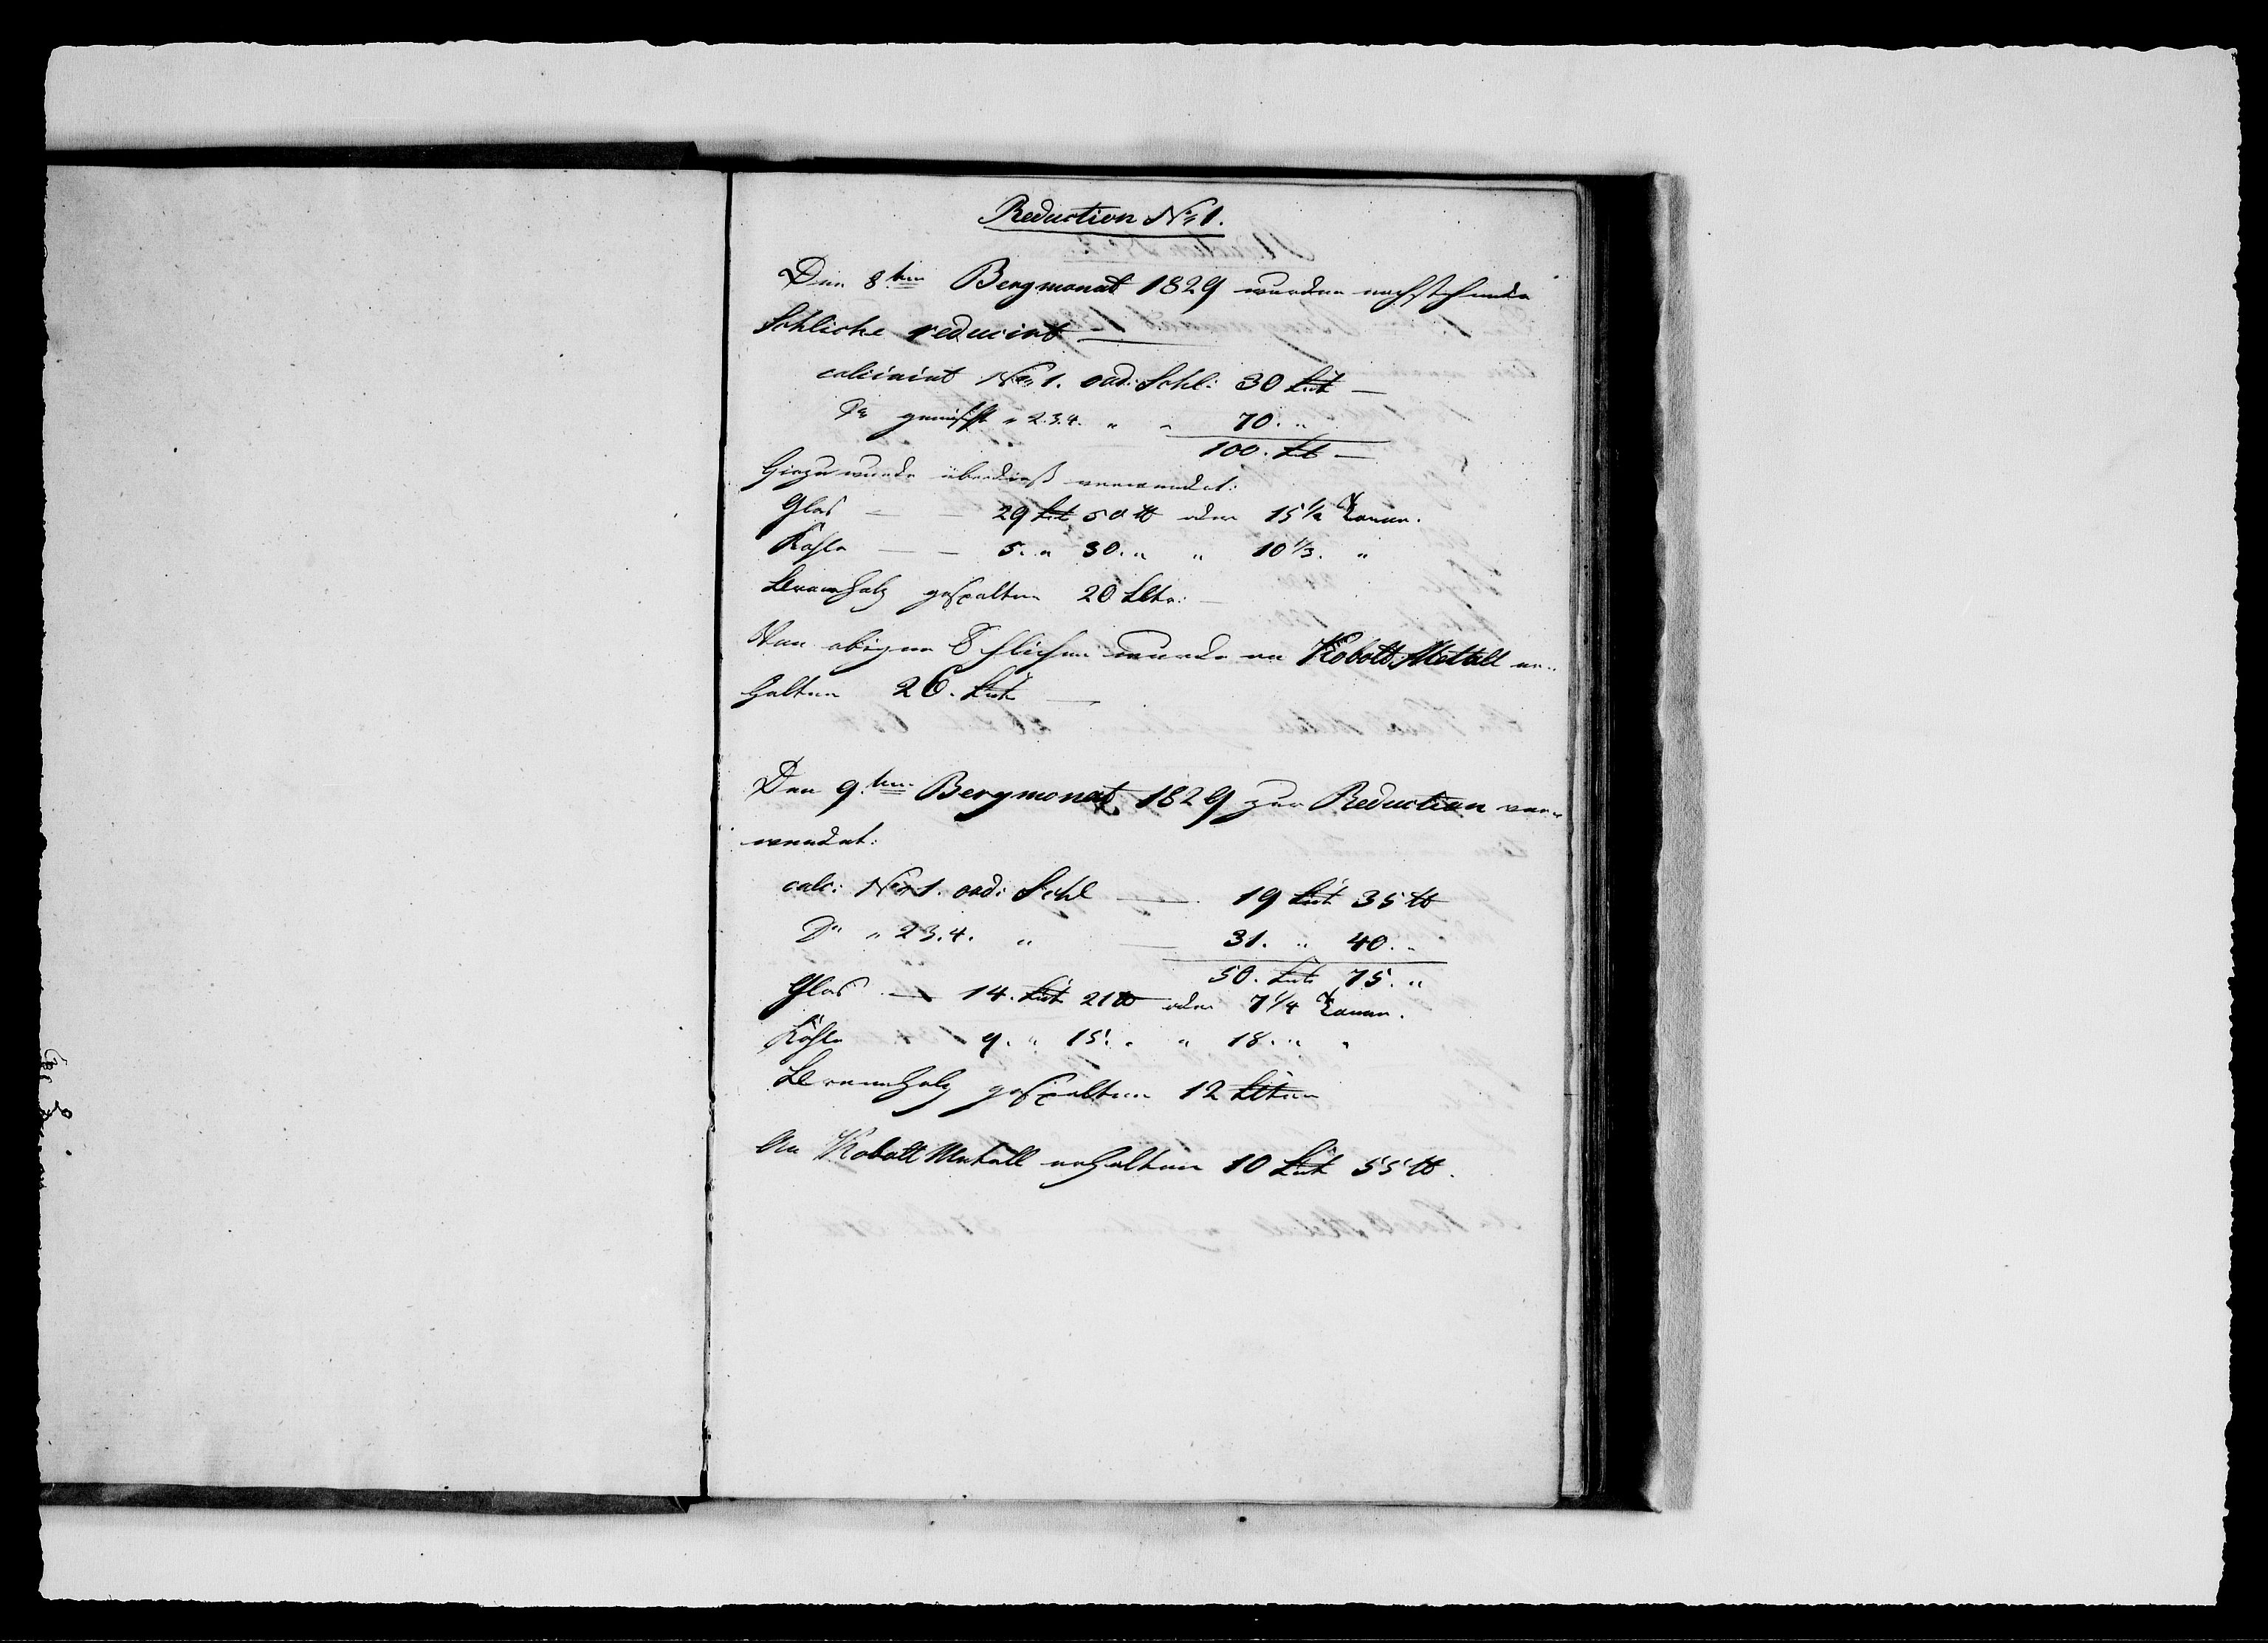 Reduction No 1.
Den 8ten Bergmonat 1829 wurden nachstehende
Schliche reducirt —
calcinirt No 1. ord: Schl: 30 Ct —
Do gemischt " 2.3.4. " " 70. "
100. Ct —
Hiezu wurde überdieß verwendet:
Glas — — 29 Ct 50 ℔ oder 15 1/2 Tonnen.
Kohle — — 5. " 30. " " 10 1/3. "
Brennholz gespalten 20 —
Von obigen Schlichen wurde an Kobolt Metall er-
halten 26. Ct —
Den 9ten Bergmonat 1829 zur Reduction ver-
wendet:
calc: No 1. ord: Schl — 19 Ct 35 ℔
Do " 2 3.4. " — 31. " 40. "
50. Ct 75. "
Glas — 14. Ct 21 ℔ oder 7 1/4 Tonnen.
Kohle 9. " 15. " " 18. " "
Brennholz gespalten 12
An Kobolt Metall erhalten 10 Ct 55 ℔.